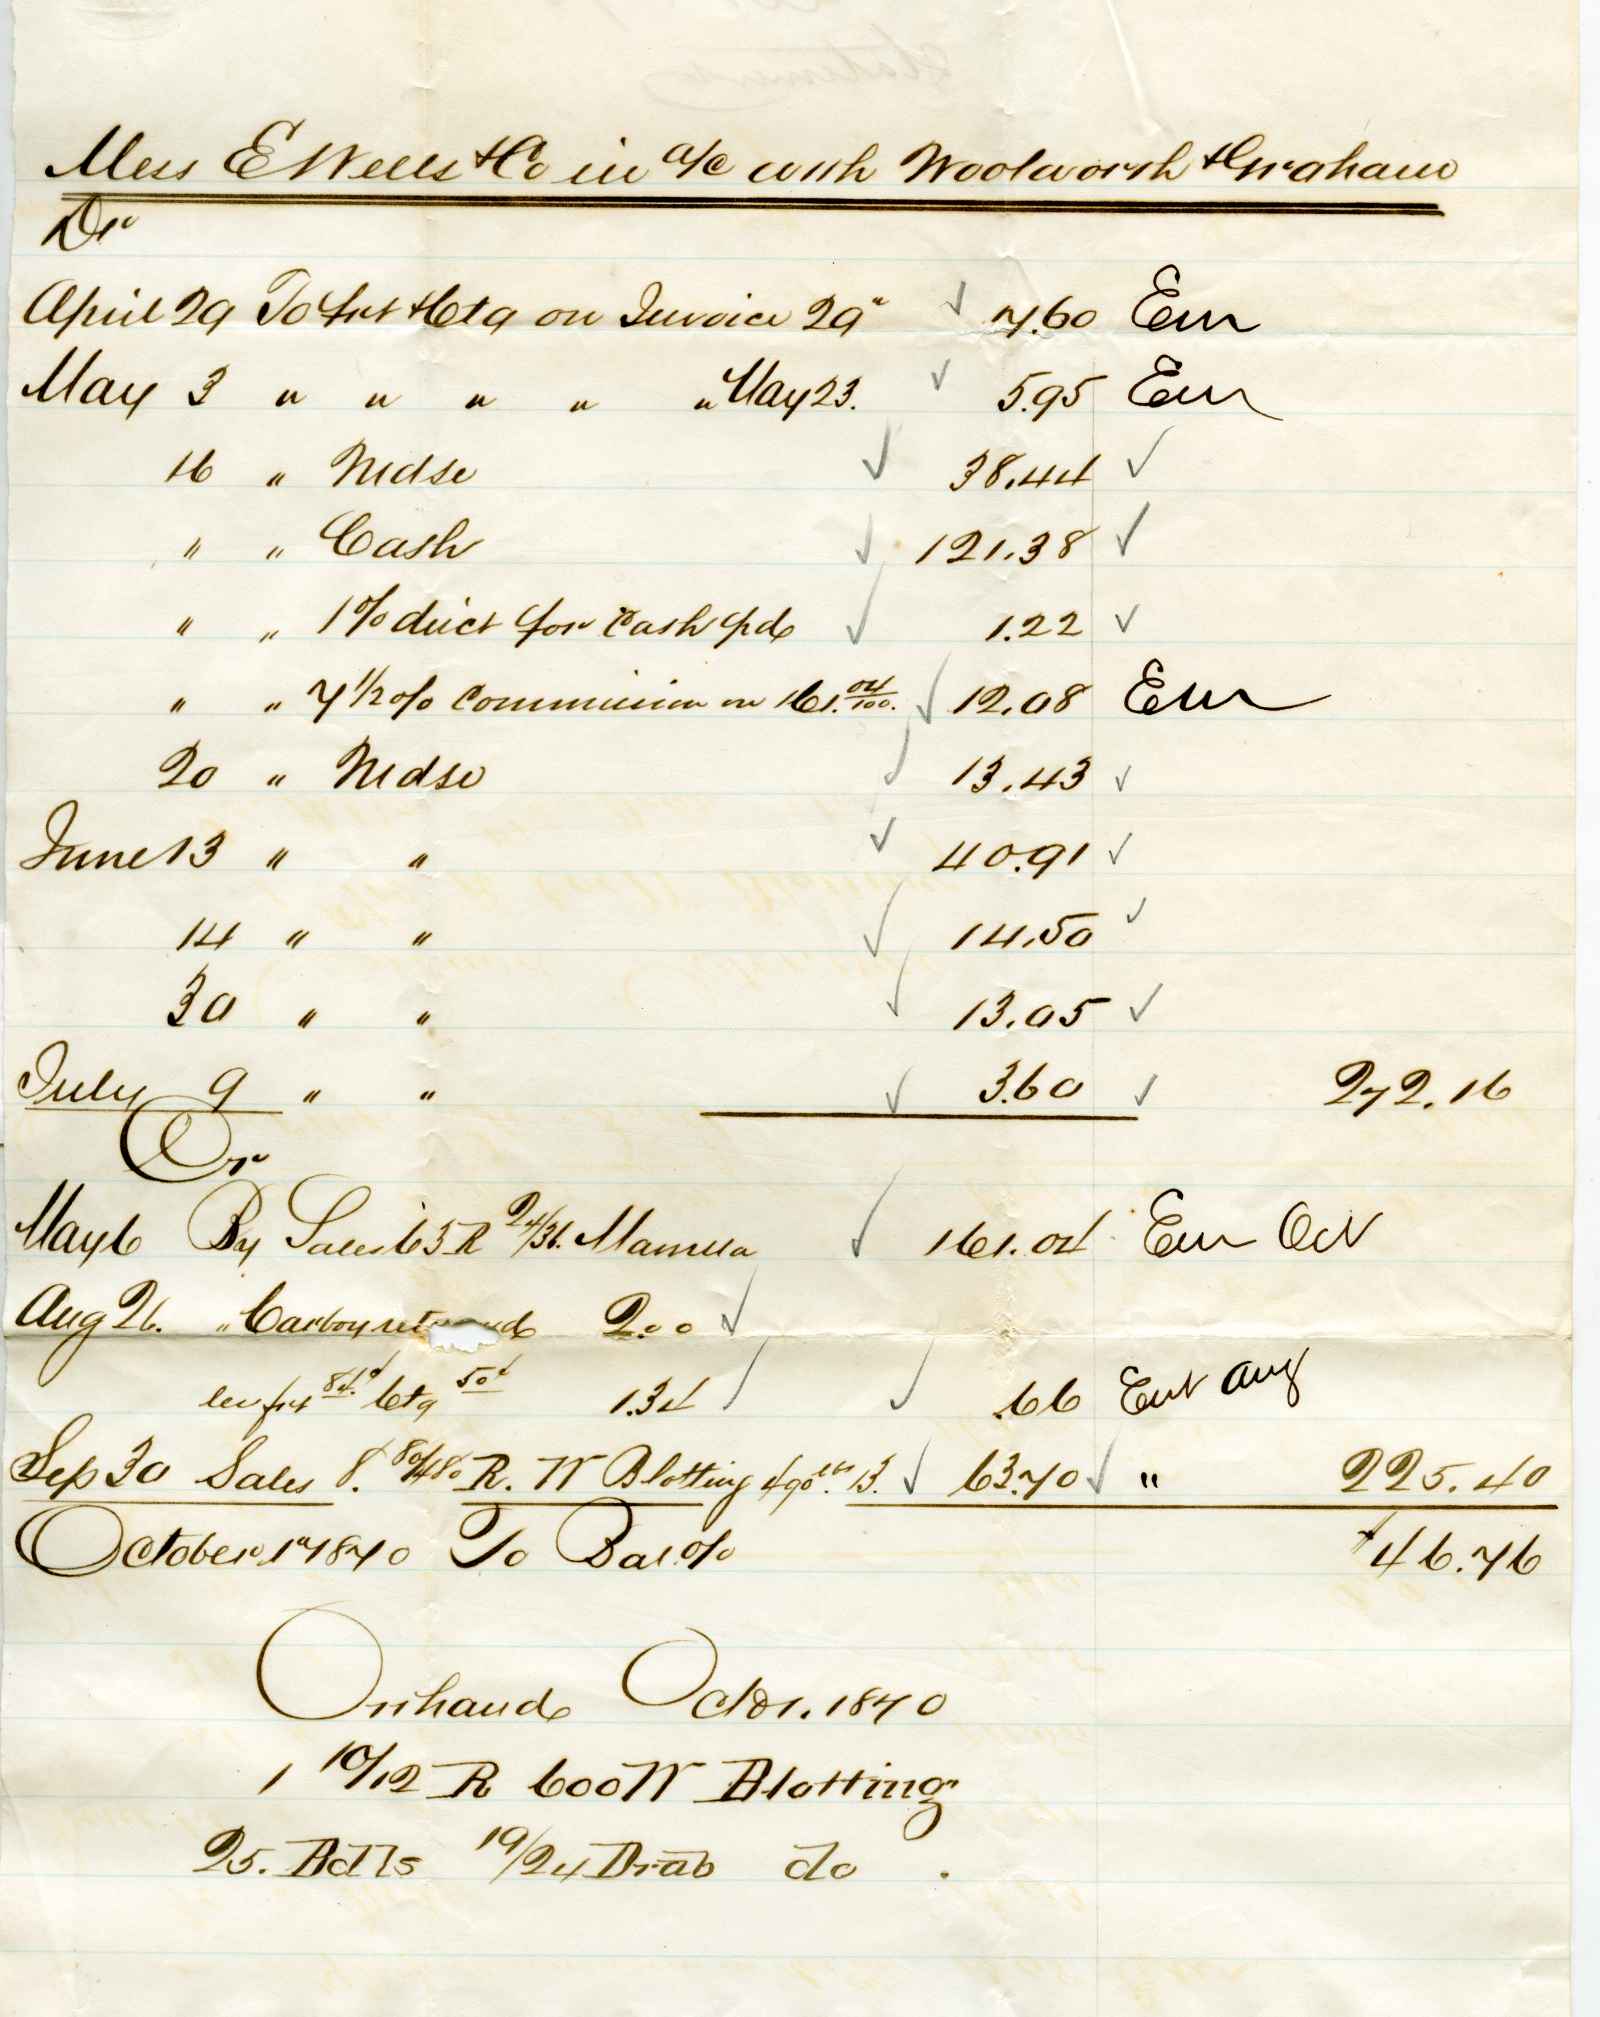 Mess E Wells & Co in a/c with Woolworth & Graham
Dr
April 29 To Frt & Ctg on Invoice 29" 7.60 Em
May 3 " " " " " May 23. 5.95 Em
16 " Mdse 38.44
" " Cash 121.38
" " 1% disct for Cash pd 1.22
" " 7 1/2 % Commission on 161.04/100. 12.08 Em
20 " Mdse 13.43
June 13 " " 40.91
14 " " 14.50
30 " " 13.05
July 9 " " 3.60 272.16
Cr
May 6 By Sales 63 R 24/36. Manilla 161.04 Em Oct
Aug 26. " Carboy returned 2.00
les frt 84¢ Ctg 50¢ 1.34 .66 Ent Aug
Sep 30 Sales 8. 80/480 R. W Blotting 490 lbs 13. 63.70 " 225.40
October 1st 1870 To Bal. % 46.76
On hand Oct 1. 1870
1 10/12 R 600 W Blotting
25. Bdls 19/24 Drab do .